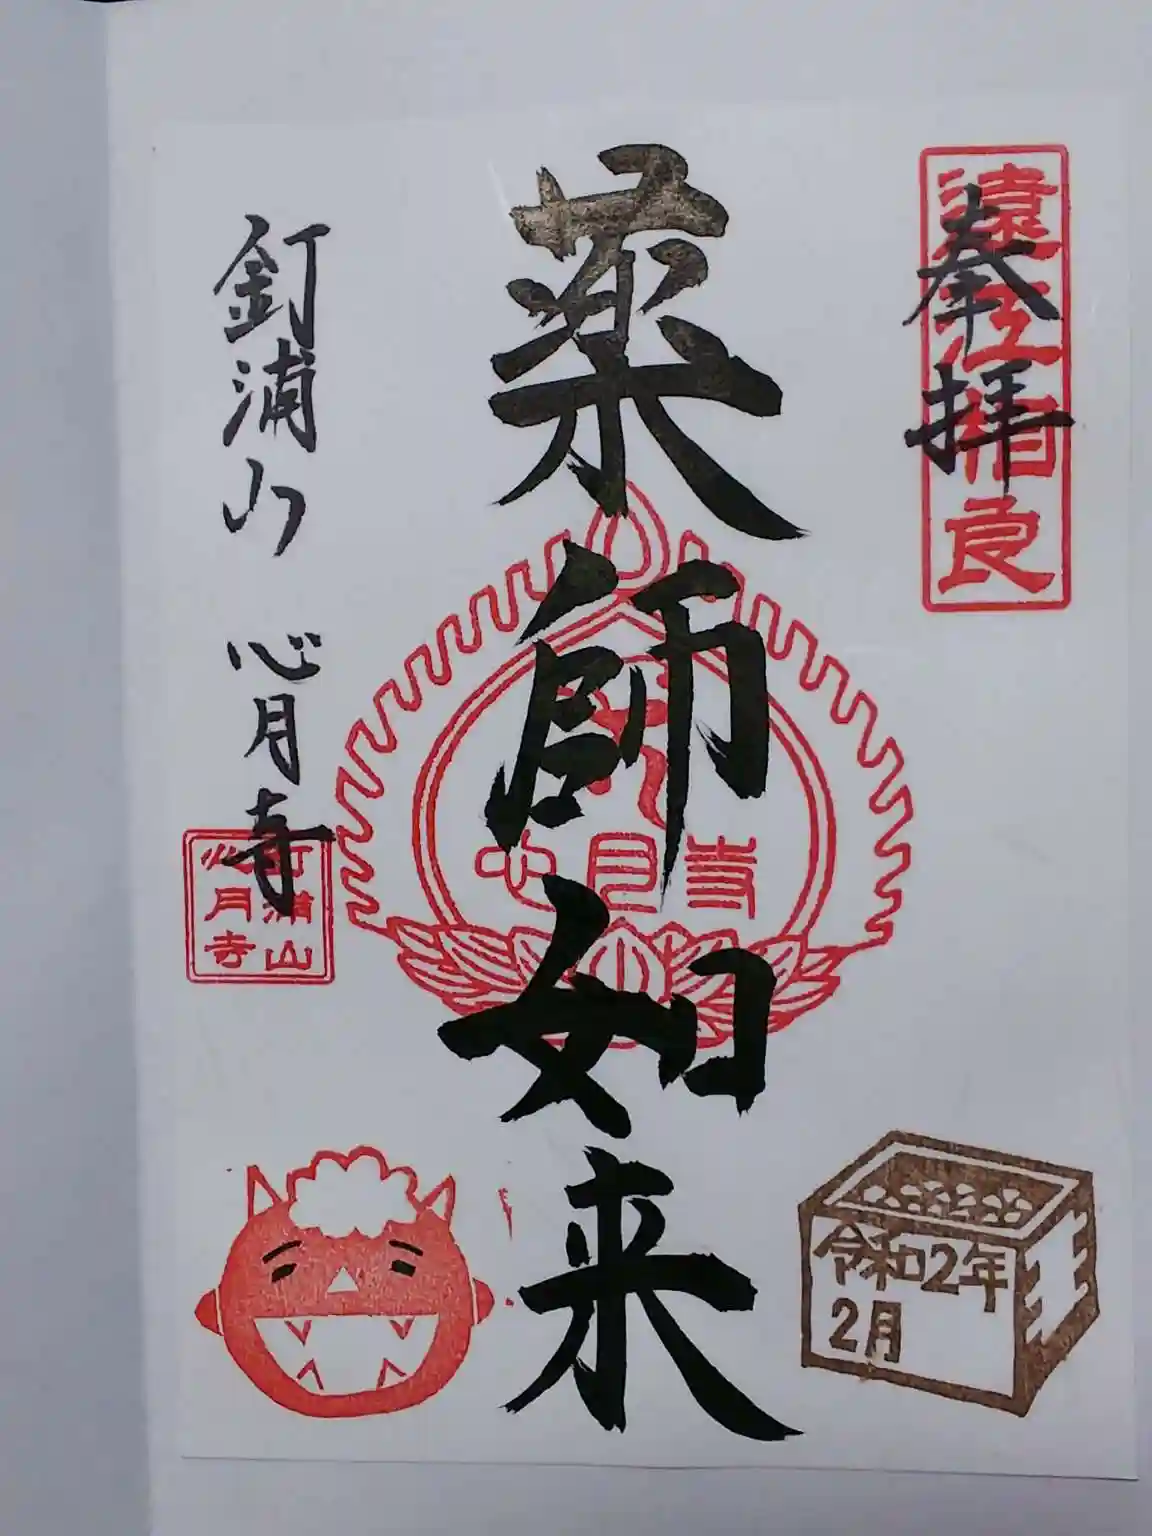 遠江相良
奉拝
薬師如来
心月寺
釘浦山 心月寺
釘浦山
心月寺
令和2年
2月